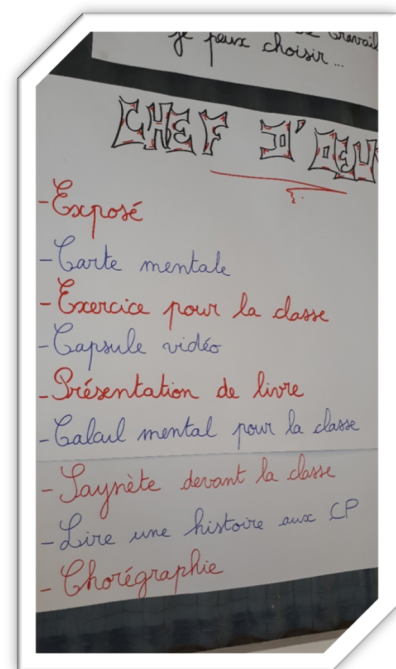 de travail
je peux choisir ...
CHEF D'OEU
- Exposé
- Carte mentale
- Exercice pour la classe
- Capsule vidéo
- Présentation de livre
- Calcul mental pour la classe
- Saynète devant la classe
- Lire une histoire aux CP
- Chorégraphie